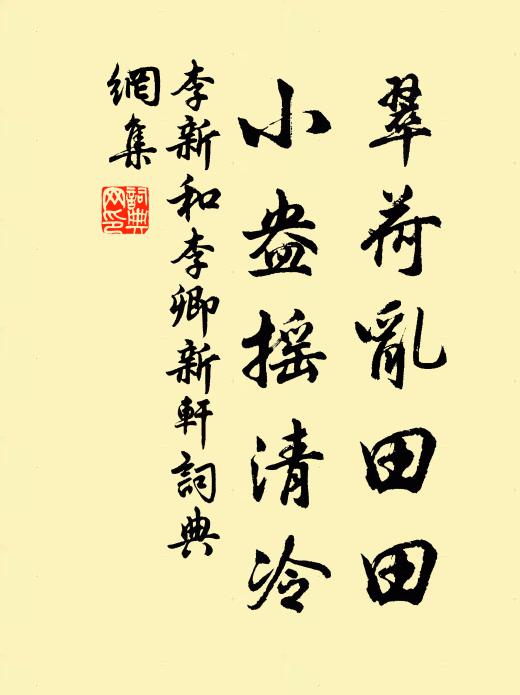 翠荷亂田田
小盎摇清冷
李新和李卿新軒詞典
網集
詞典
网印